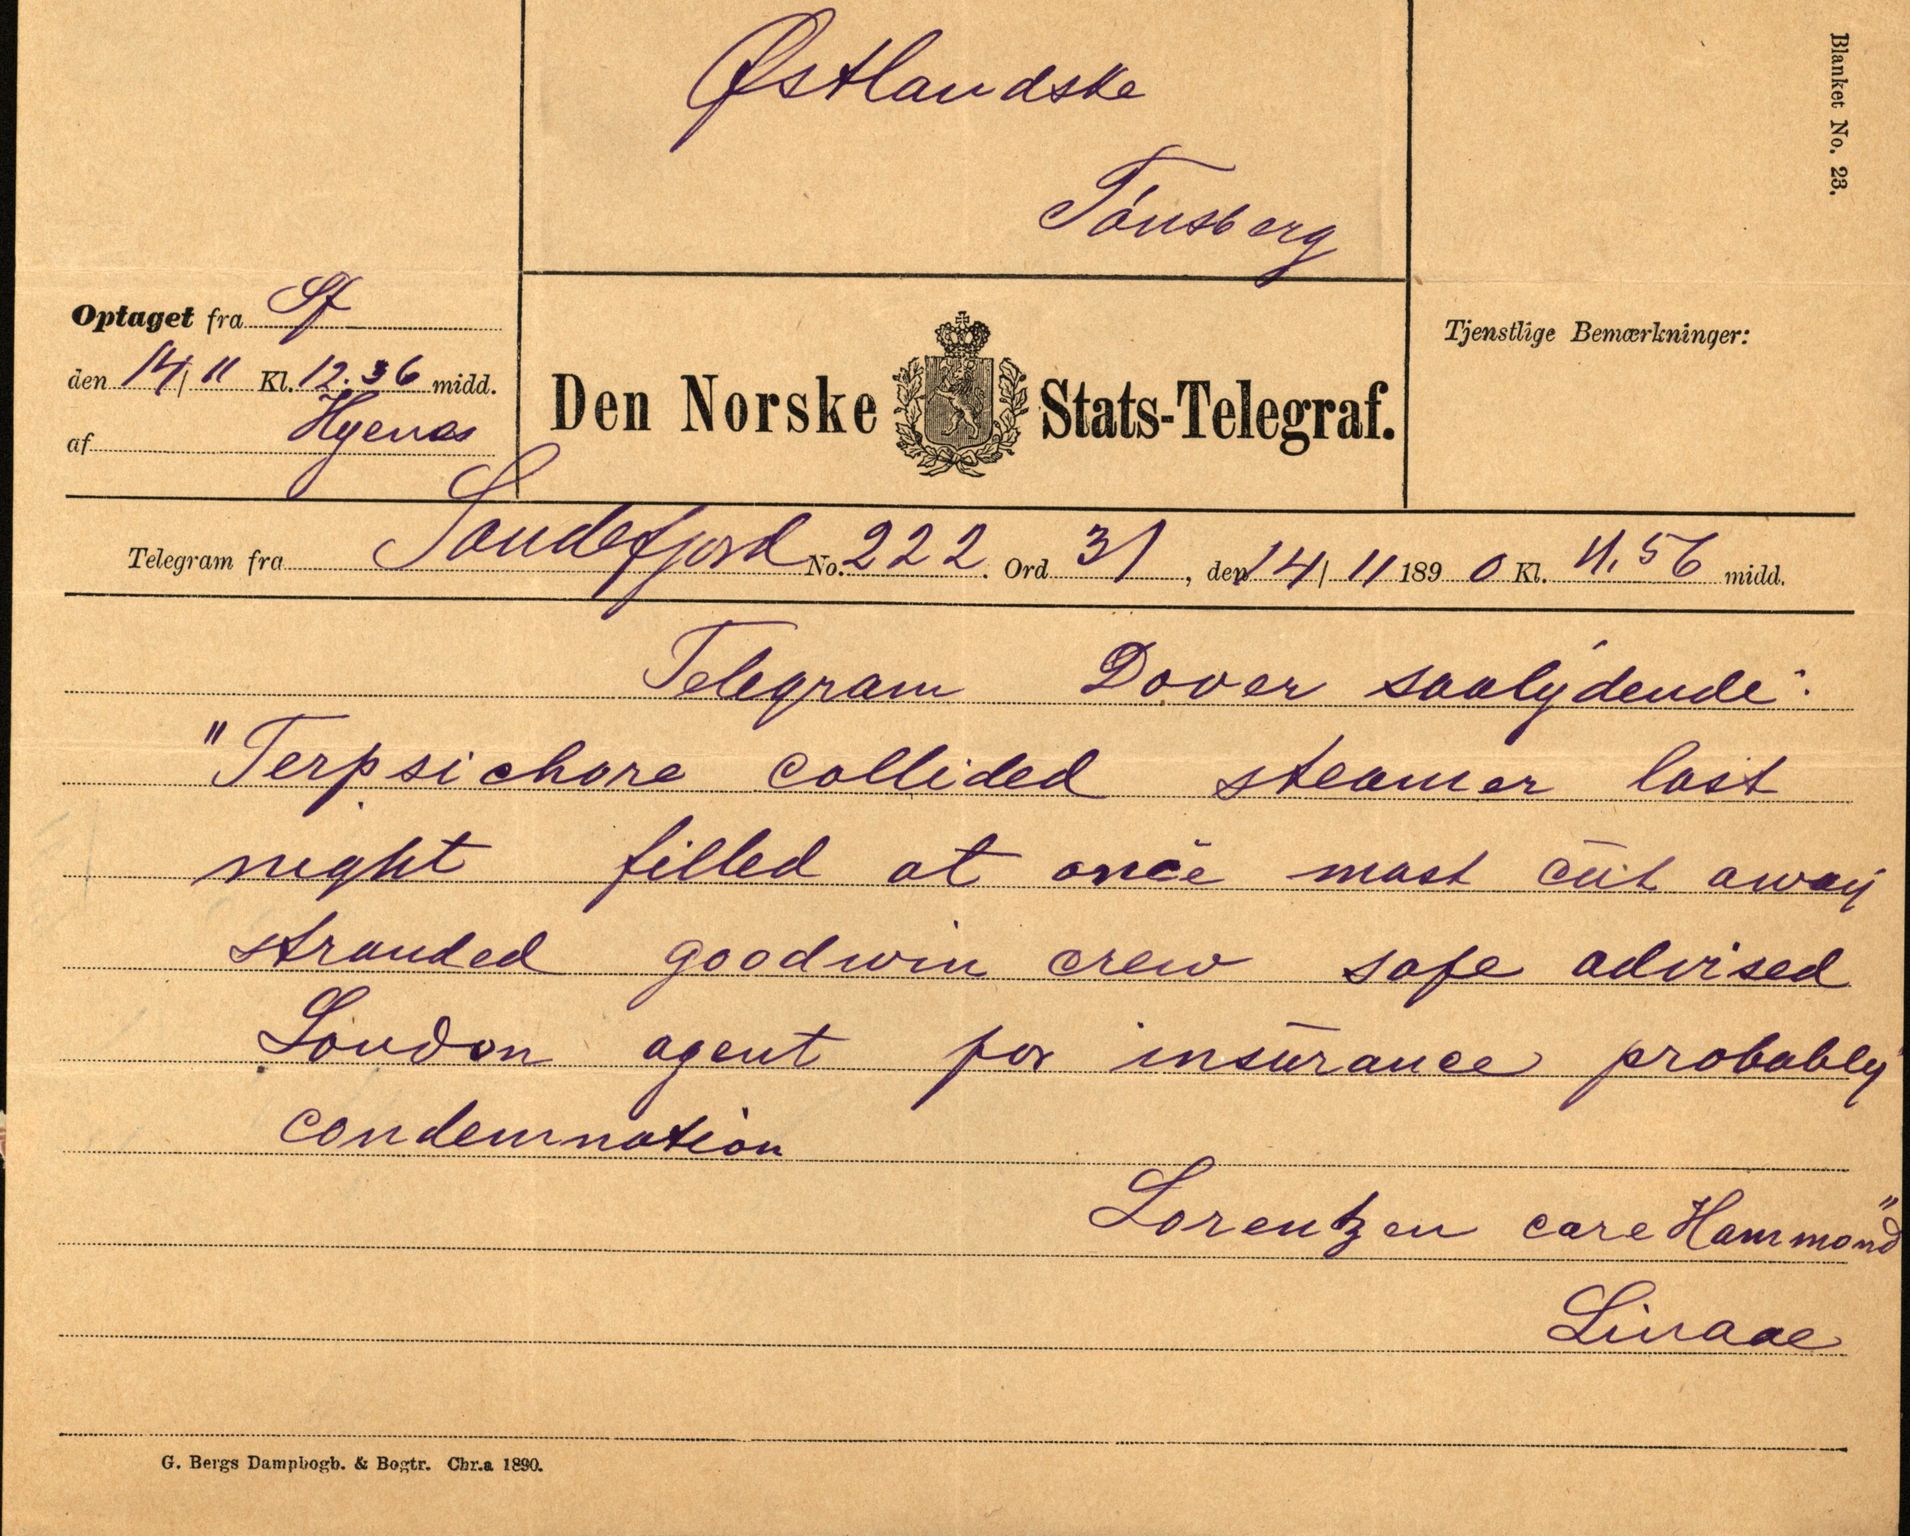 Østlandske
Tönsberg
Blanket No. 23.
Optaget fra Sf
den 14/11 Kl. 12.36 midd.
af
Den Norske Stats-Telegraf.
Tjenstlige Bemærkninger:
Telegram fra Sandefjord No. 222. Ord 31, den 14/11 1890 Kl. 11.56 midd.
Telegram Dover saalydende:
"Terpsichore collided steamer last
night filled at once mast cut away
stranded goodwin crew safe advised
London agent for insurance probably
condemnation
Lorentzen care Hammond"
Linaae
G. Bergs Dampbogb. & Bogtr. Chr.a 1890.